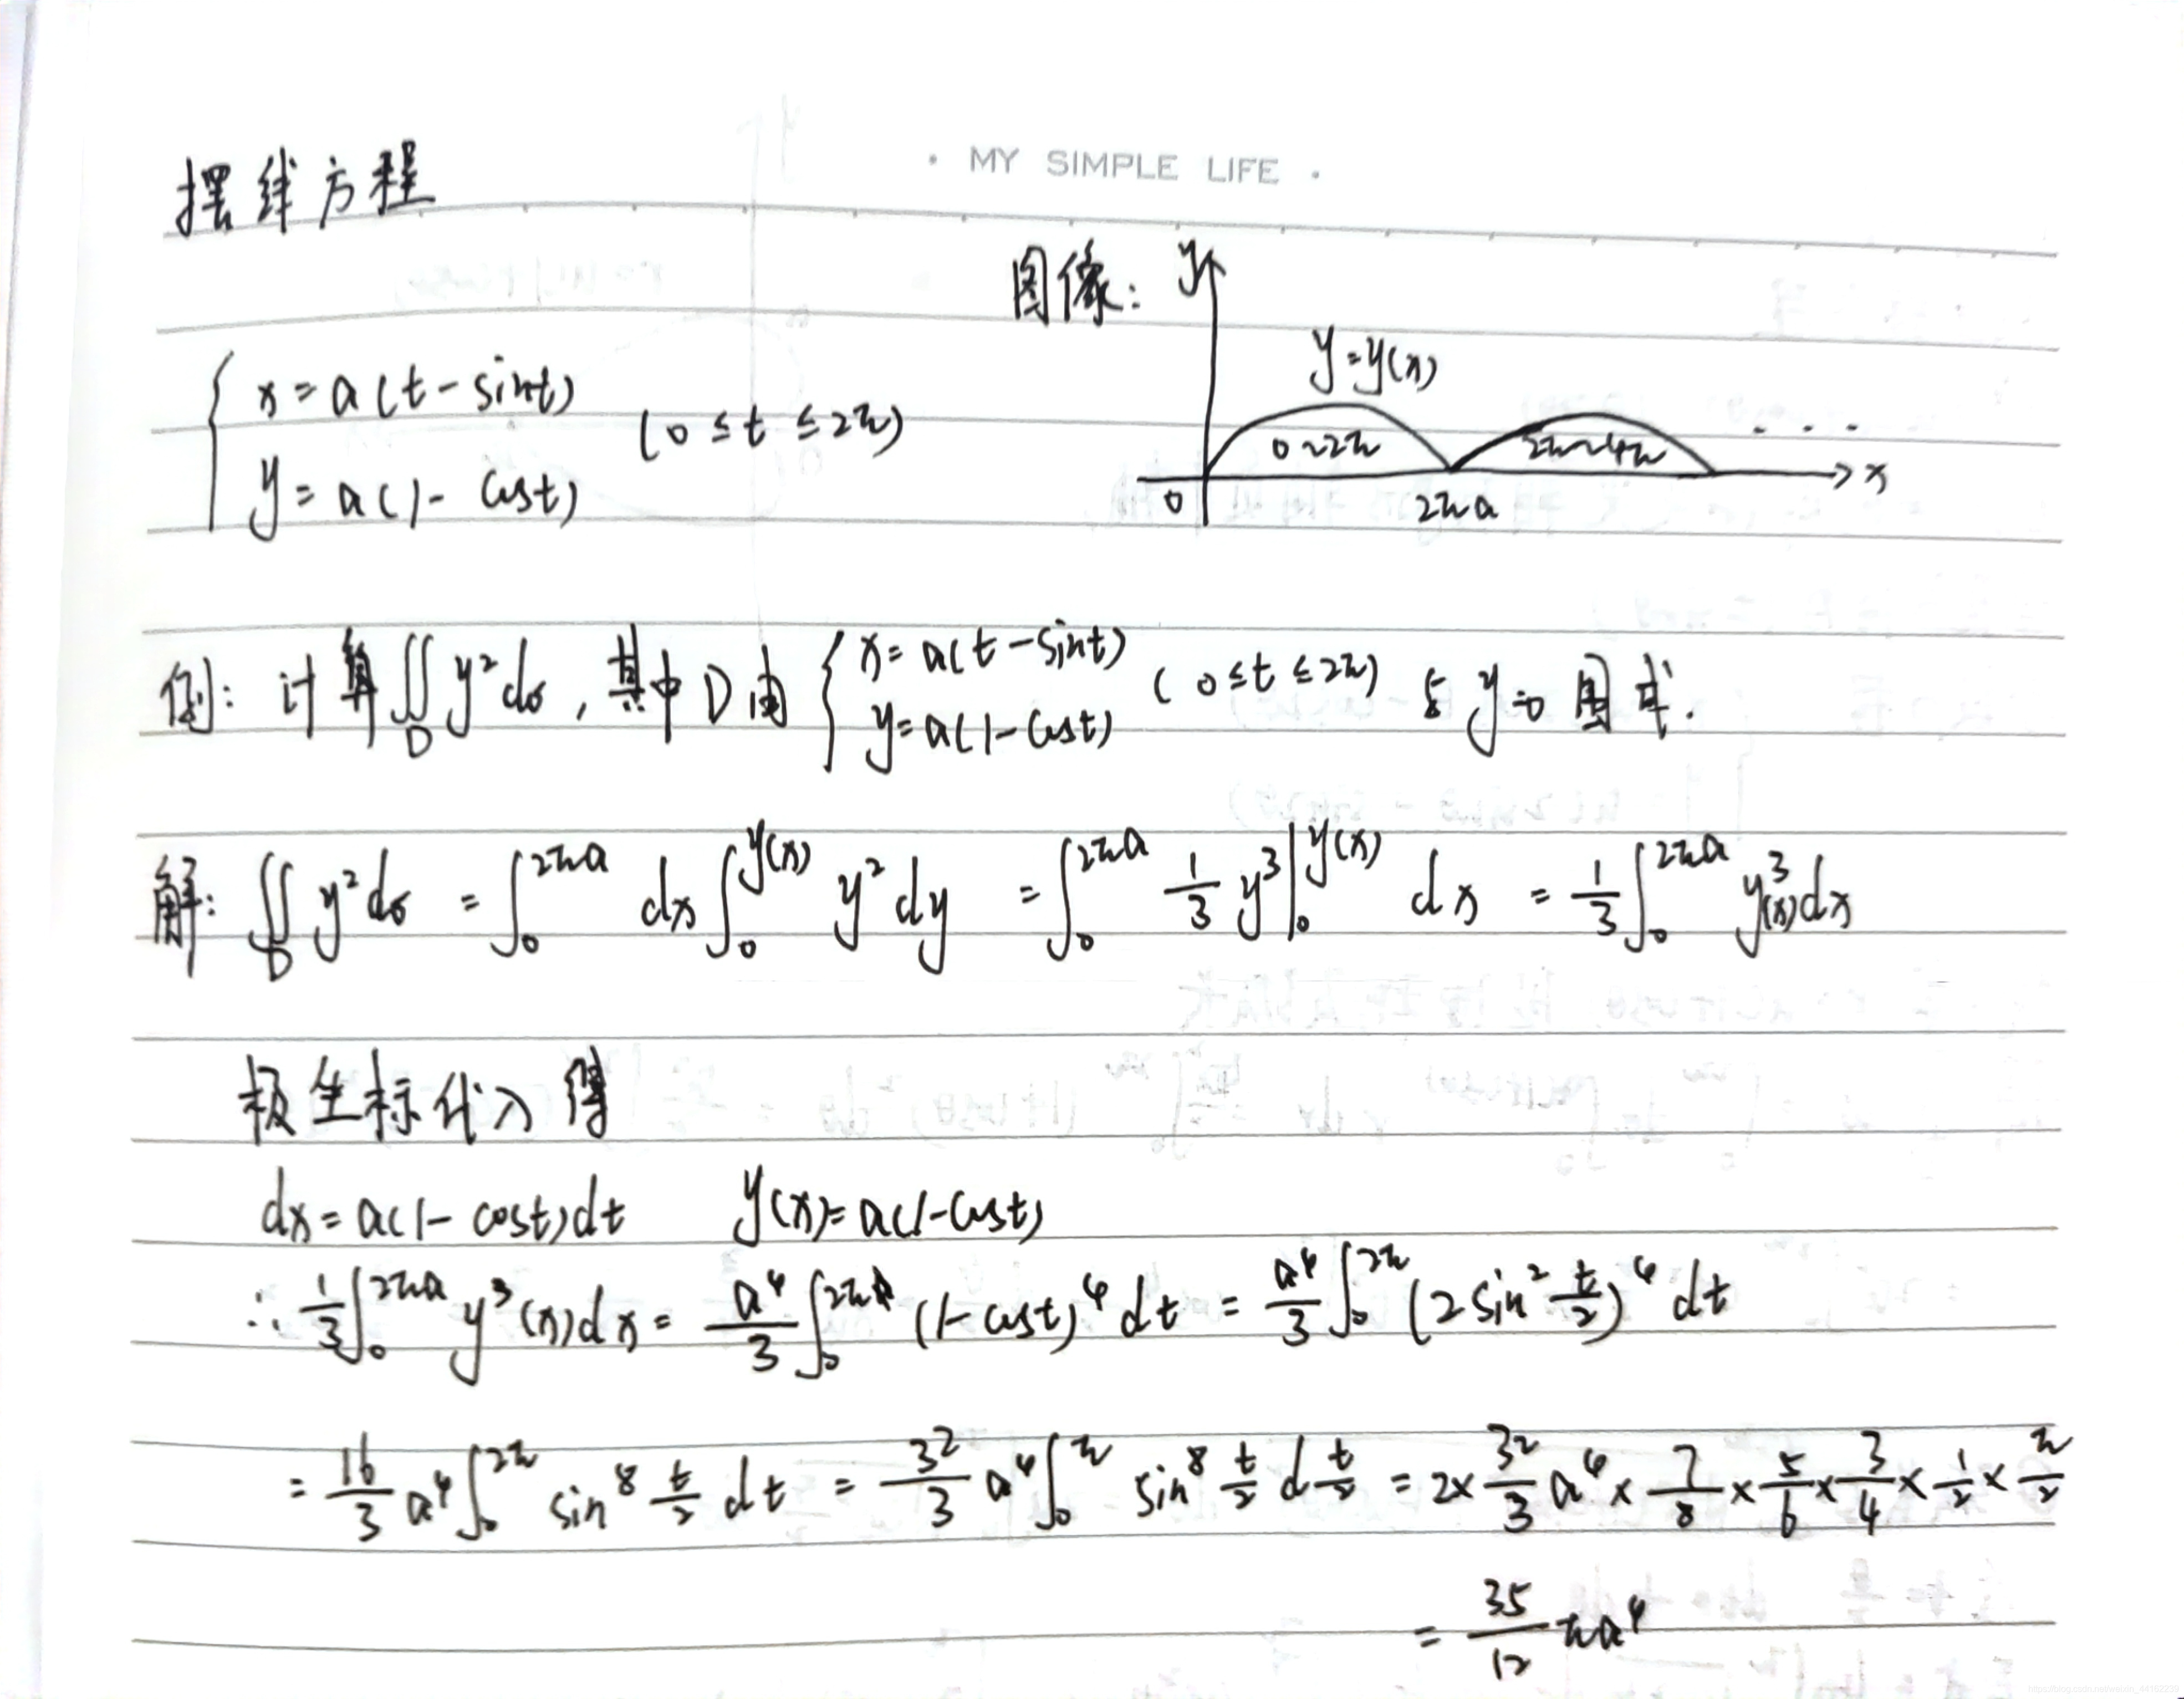 · MY SIMPLE LIFE ·
摆线方程
图像: y
y=y(x)
{ x=a(t-sint)
y=a(1-cost) (0≤t≤2π)
0~2π 2π~4π ...
0 2πa x
例: 计算∬_D y²dσ, 其中D由 { x=a(t-sint) y=a(1-cost) (0≤t≤2π) 与 y=0 围成.
解: ∬_D y²dσ = ∫_0^{2πa} dx ∫_0^{y(x)} y²dy = ∫_0^{2πa} 1/3 y³ |_0^{y(x)} dx = 1/3 ∫_0^{2πa} y³(x)dx
极坐标代入得
dx=a(1-cost)dt y(x)=a(1-cost)
∴ 1/3 ∫_0^{2πa} y³(x)dx = a⁴/3 ∫_0^{2π} (1-cost)⁴dt = a⁴/3 ∫_0^{2π} (2sin² t/2)⁴ dt
= 16/3 a⁴ ∫_0^{2π} sin⁸ t/2 dt = 32/3 a⁴ ∫_0^π sin⁸ t/2 d t/2 = 2× 32/3 a⁴ × 7/8 × 5/6 × 3/4 × 1/2 × π/2
= 35/12 πa⁴